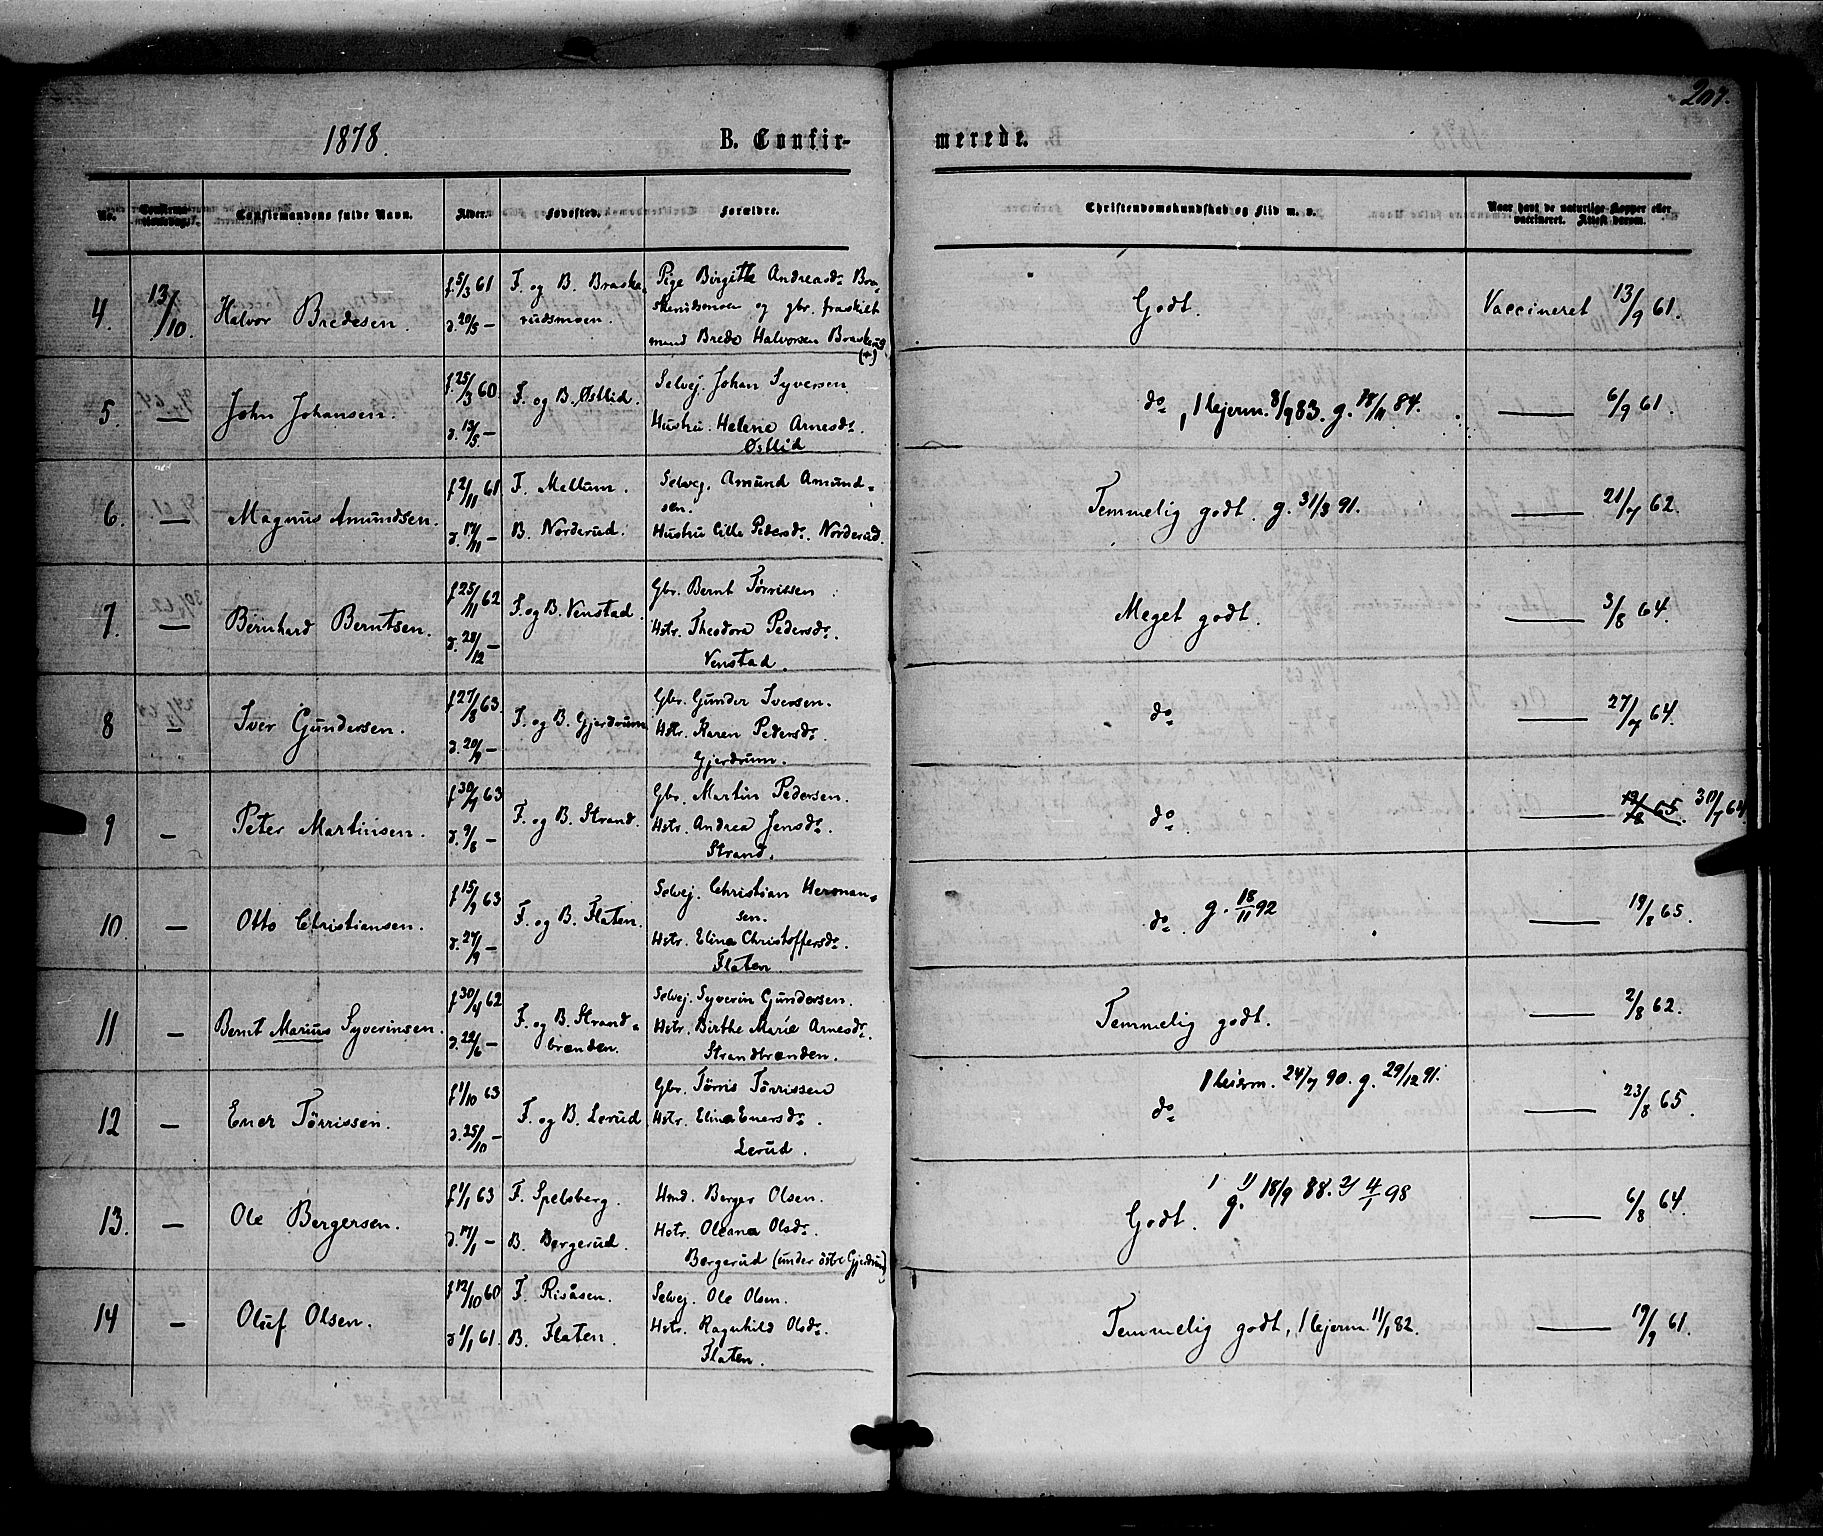 207.
1878. B. Confir- merede.
No. Confirmandens fulde Navn. Alder. Fødested. Forældre. Christendomskundskab og Flid m. v. Naar havt de naturlige Kopper eller
vaccineret. Attest derom.
4. 13/10. Halvor Bredesen. f 5/3 61 d. 20/5 — F. og B. Braske-
rudsmoen. Pige Birgitte Andreasdr. Bra-
skerudsmoen og gbr. fraskilt
mand Brede Halvorsen Braskerud
(+) Godt. Vaccineret 13/9 61.
5. — John Johansen. f 25/3 60 d. 13/5 — F. og B. Østlid. Selvej. Johan Syversen
Hustru. Helene Arnesdr.
Østlid do, 1 lejerm. 8/9 83. g. 18/11 84. — 6/9 61.
6. — Magnus Amundsen. f 2/11 61 d. 17/11 — F. Mellum.
B. Norderud. Selvej. Amund Amund-
sen.
Hustru Cille Pedersdr. Norderud. Temmelig godt. g. 31/3 91. — 21/7 62.
7. — Bernhard Berntsen. f 25/11 62 d. 28/12 — F. og B. Venstad. Gbr. Bernt Tørrissen
Hstr. Theodora Pedersdr.
Venstad. Meget godt. — 3/8 64.
8 — Iver Gundersen. f 27/8 63. d. 20/9 — F. og B. Gjerdrum Gbr. Gunder Iversen.
Hstr. Karen Pedersdr.
Gjerdrum. do — 27/7 64.
9 — Peter Martinsen. f 30/7 63 d. 9/8 — F. og B. Strand. Gbr. Martin Pedersen.
Hstr. Andrea Jensdr.
Strand. do — 19/8 65. 30/7 64
10. — Otto Christiansen. f 15/9 63 d. 27/9 — F. og B. Flaten. Selvej. Christian Herman-
sen.
Hstr. Elina Christoffersdr.
Flaten do. g. 18/11 92 — 19/8 65.
11 — Bernt Marius Syverinsen. f 30/4 62 d. 22/6 — F. og B. Strand-
brenden. Selvej. Syverin Gundersen.
Hstr. Birthe Marie Arnesdr.
Strandbrenden. Temmelig godt. — 2/8 62.
12 — Ener Tørrissen. f 1/10 63 d. 25/10 — F. og B. Lerud Gbr. Tørris Tørrissen
Hstr. Elina Enersdr.
Lerud. do 1 leierm. 24/7 90. g. 29/12 91. — 23/8 65.
13. — Ole Bergersen. f 1/1 63 d. 7/1 — F. Spelsberg.
B. Bergerud. Hmd. Berger Olsen.
Hstr. Oleana Olsdr.
Bergerud (under østre Gjerdrum) Godt. g. 1) 18/9 88. 2) 4/1 98 — 6/8 64.
14 — Oluf Olsen. f 12/10 60 d 1/1 61. F. Risåsen.
B. Flaten. Selvej. Ole Olsen.
Hstr. Ragnhild Olsdr.
Flaten. Temmelig godt, 1 lejerm. 11/1 82. — 19/9 61.